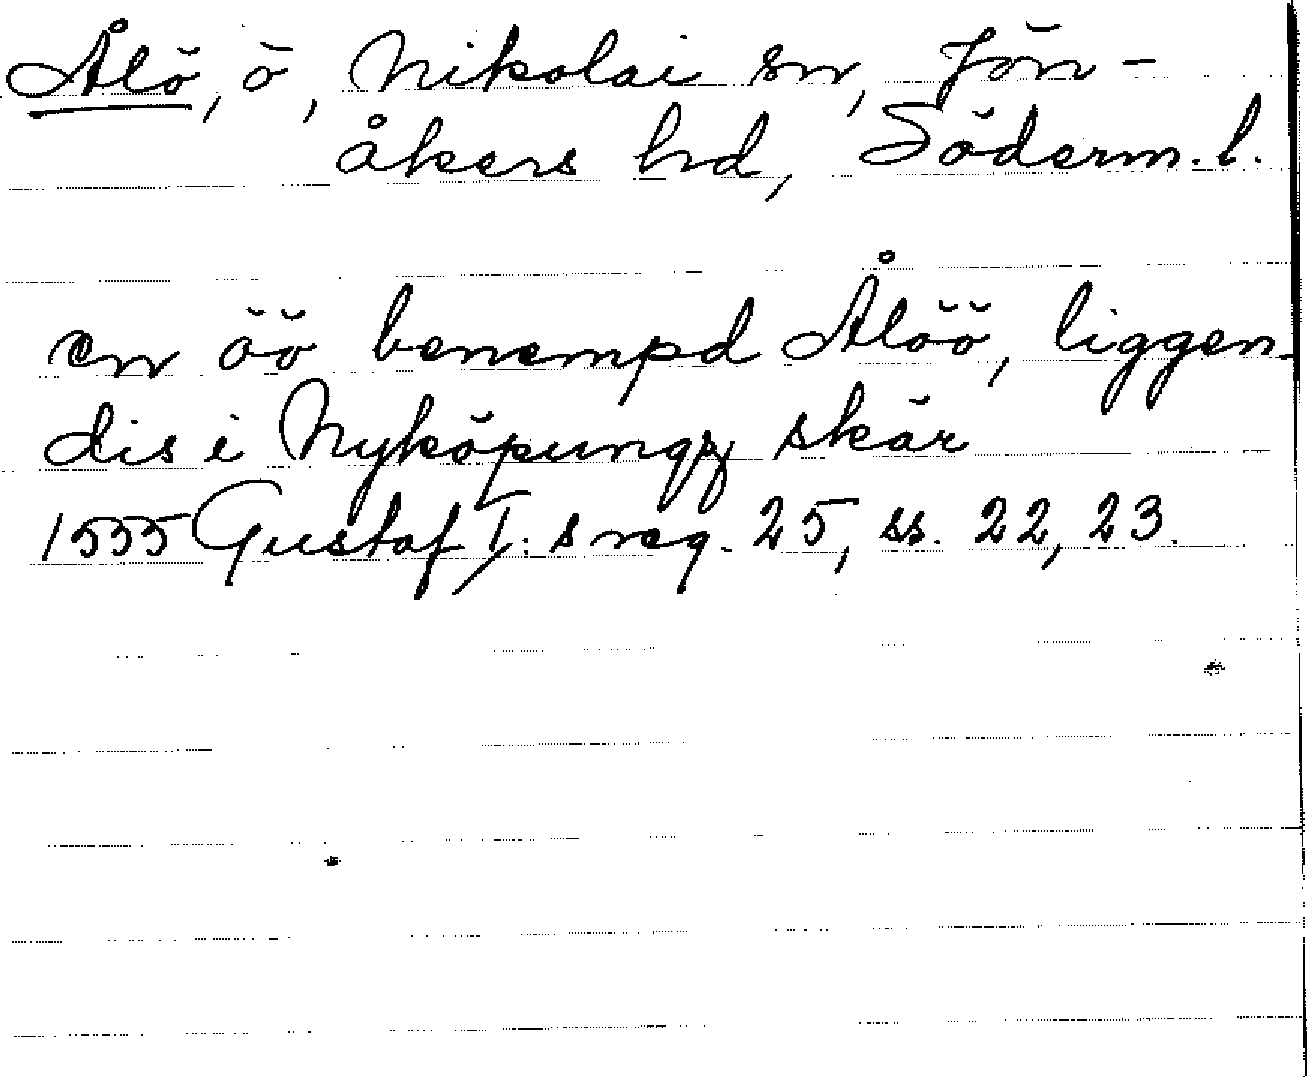 Ålö, ö, Nikolai sn, Jön-
åkers hd, Söderm. l.
en öö benempd Ålöö, liggen-
dis i Nyköpungz skär
1555 Gustaf I:s reg. 25, ss. 22, 23.